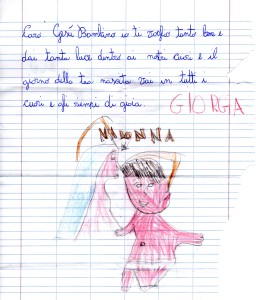 Caro Gesù Bambino io ti voglio tanto bene e
dai tanta luce dentro ai nostri cuori e il
giorno della tua nascita vai in tutti i
cuori e gli riempi di gioia.
GIORGIA
MADONNA